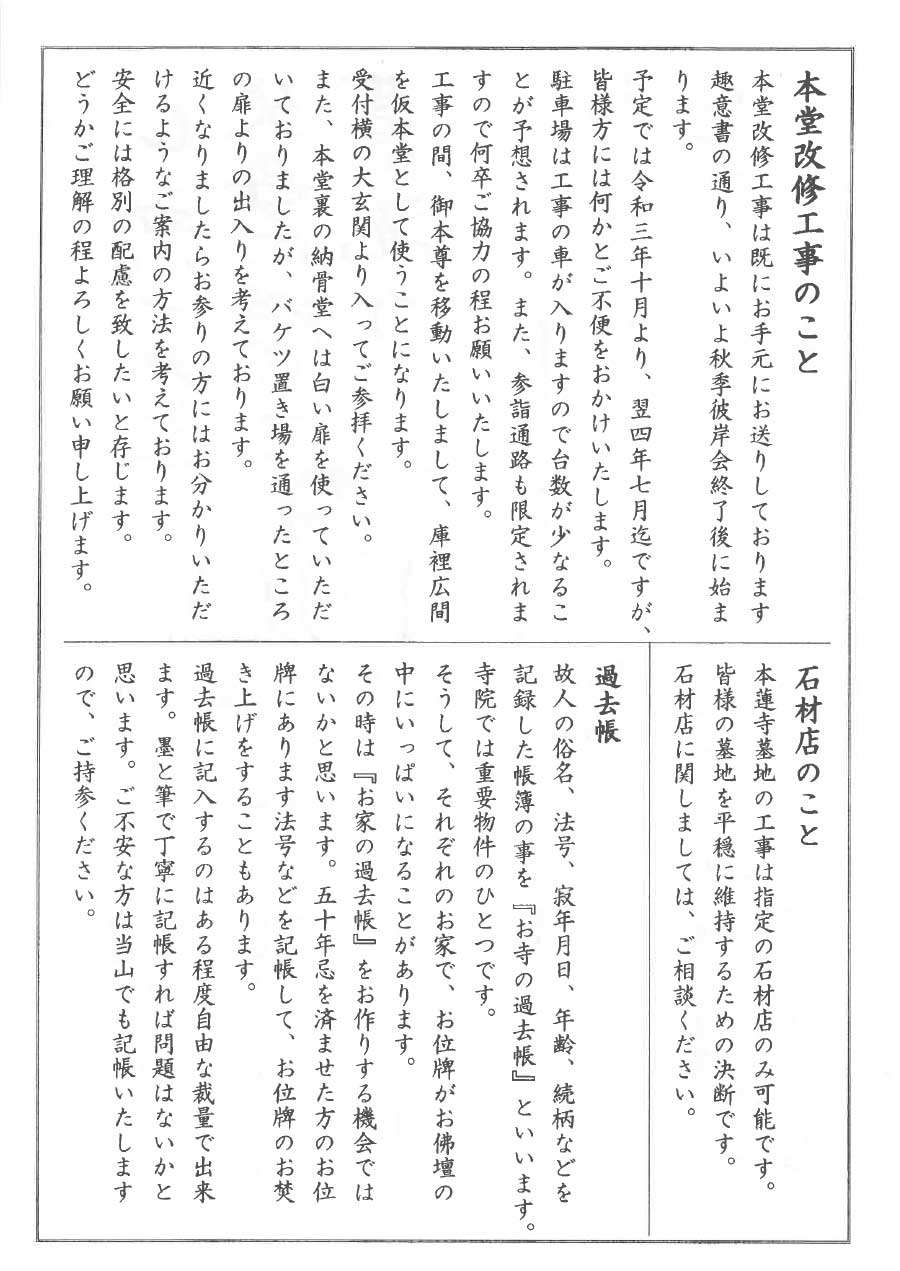 本堂改修工事のこと
本堂改修工事は既にお手元にお送りしております
趣意書の通り、いよいよ秋季彼岸会終了後に始ま
ります。
予定では令和三年十月より、翌四年七月迄ですが、
皆様方には何かとご不便をおかけいたします。
駐車場は工事の車が入りますので台数が少なるこ
とが予想されます。また、参詣通路も限定されま
すので何卒ご協力の程お願いいたします。
工事の間、御本尊を移動いたしまして、庫裡広間
を仮本堂として使うことになります。
受付横の大玄関より入ってご参拝ください。
また、本堂裏の納骨堂へは白い扉を使っていただ
いておりましたが、バケツ置き場を通ったところ
の扉よりの出入りを考えております。
近くなりましたらお参りの方にはお分かりいただ
けるようなご案内の方法を考えております。
安全には格別の配慮を致したいと存じます。
どうかご理解の程よろしくお願い申し上げます。
石材店のこと
本蓮寺墓地の工事は指定の石材店のみ可能です。
皆様の墓地を平穏に維持するための決断です。
石材店に関しましては、ご相談ください。
過去帳
故人の俗名、法号、寂年月日、年齢、続柄などを
記録した帳簿の事を『お寺の過去帳』といいます。
寺院では重要物件のひとつです。
そうして、それぞれのお家で、お位牌がお佛壇の
中にいっぱいになることがあります。
その時は『お家の過去帳』をお作りする機会では
ないかと思います。五十年忌を済ませた方のお位
牌にあります法号などを記帳して、お位牌のお焚
き上げをすることもあります。
過去帳に記入するのはある程度自由な裁量で出来
ます。墨と筆で丁寧に記帳すれば問題はないかと
思います。ご不安な方は当山でも記帳いたします
ので、ご持参ください。